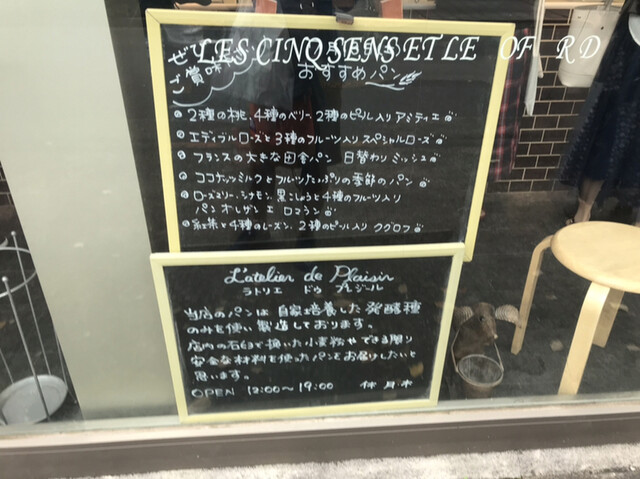 LES CINQ SENS ET LE OF R D
ぜひ
ご賞味
おすすめパン
2種の桃、4種のベリー、2種のピール入り アミティエ
エディブルローズと3種のフルーツ入り スペシャルローズ
フランスの大きな田舎パン 日替わり ミッシュ
ココナッツミルクとフルーツたっぷりの季節のパン
ローズマリー、シナモン、黒こしょうと4種のフルーツ入り
パン オレザン エ ロマラン
紅茶と4種のレーズン、2種のピール入り クグロフ
L'atelier de Plaisir
ラトリエ ドゥ プレジール
当店のパンは自家培養した発酵種
のみを使い製造しております。
店内の石臼で挽いた小麦粉やできる限り
安全な材料を使ったパンをお届けしたいと
思います。
OPEN 12:00〜19:00 休 月・木